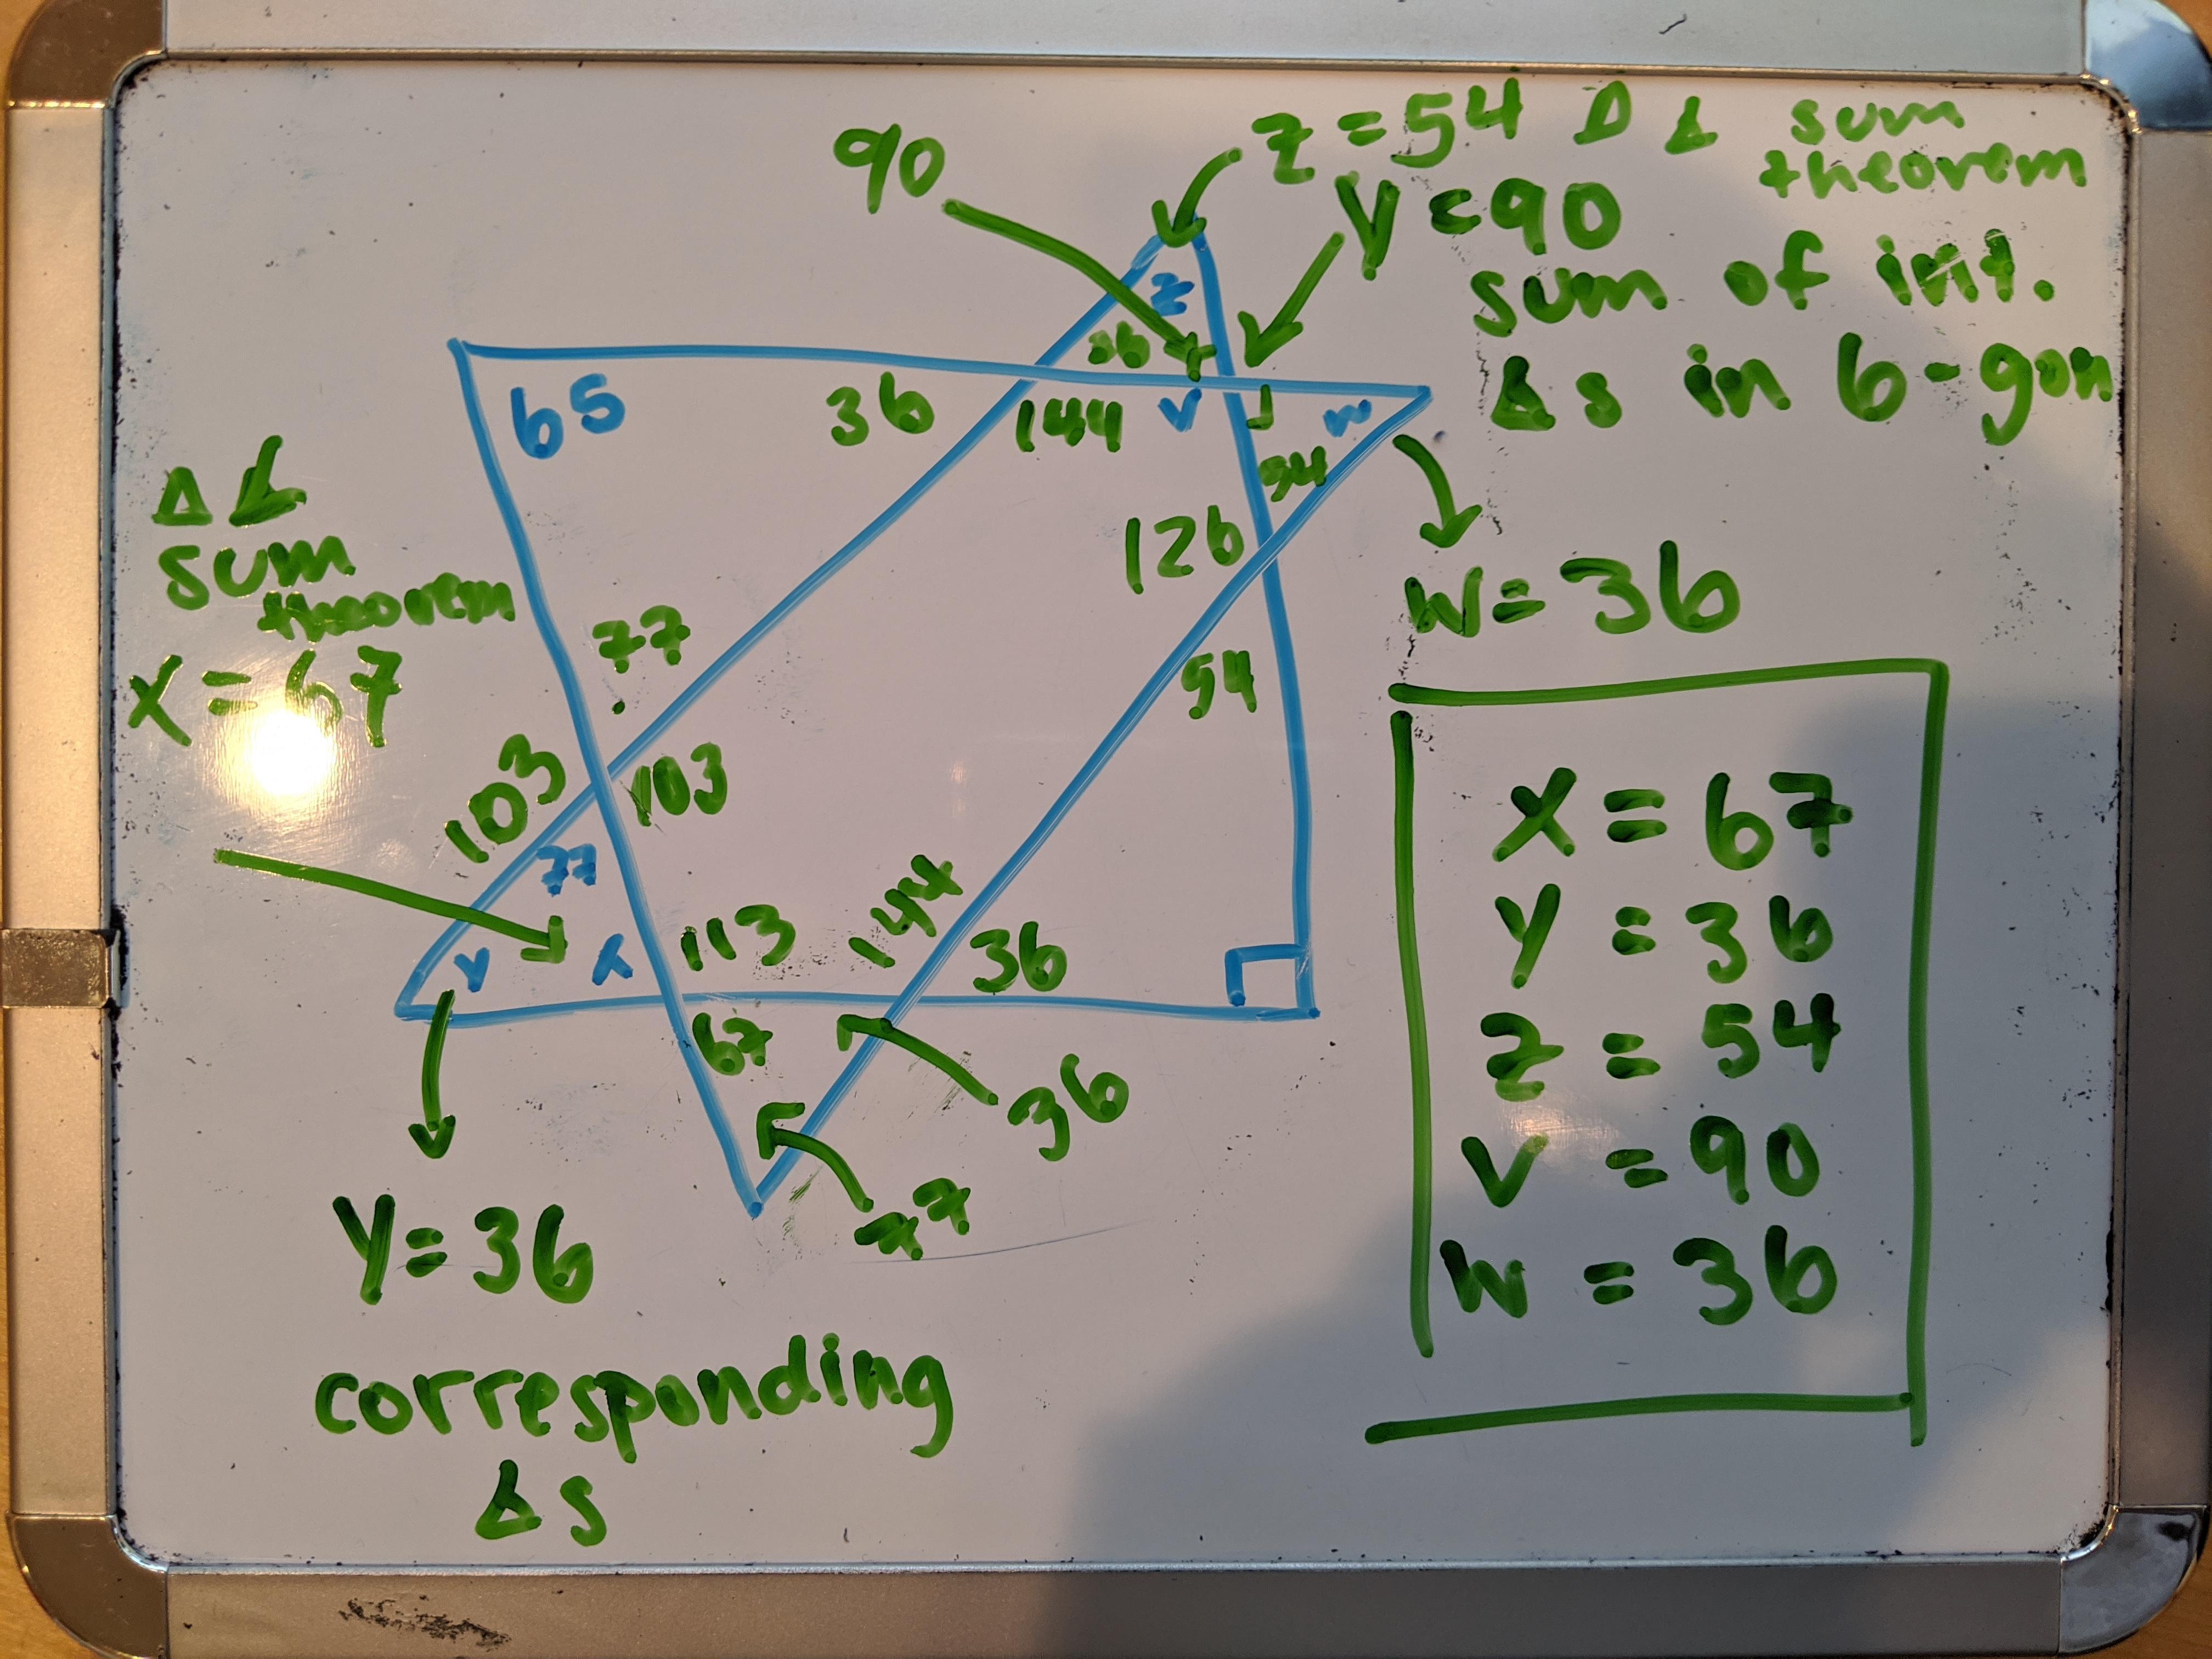 90
z = 54 △ ∠ sum
theorem
y = 90
sum of int.
∠s in 6-gon
z
36
65
36
144
v
w
54
△ ∠
sum
theorem
x = 67
126
w = 36
77
54
103
103
77
113
144
36
y
x
67
36
77
y = 36
corresponding
∠s
x = 67
y = 36
z = 54
v = 90
w = 36